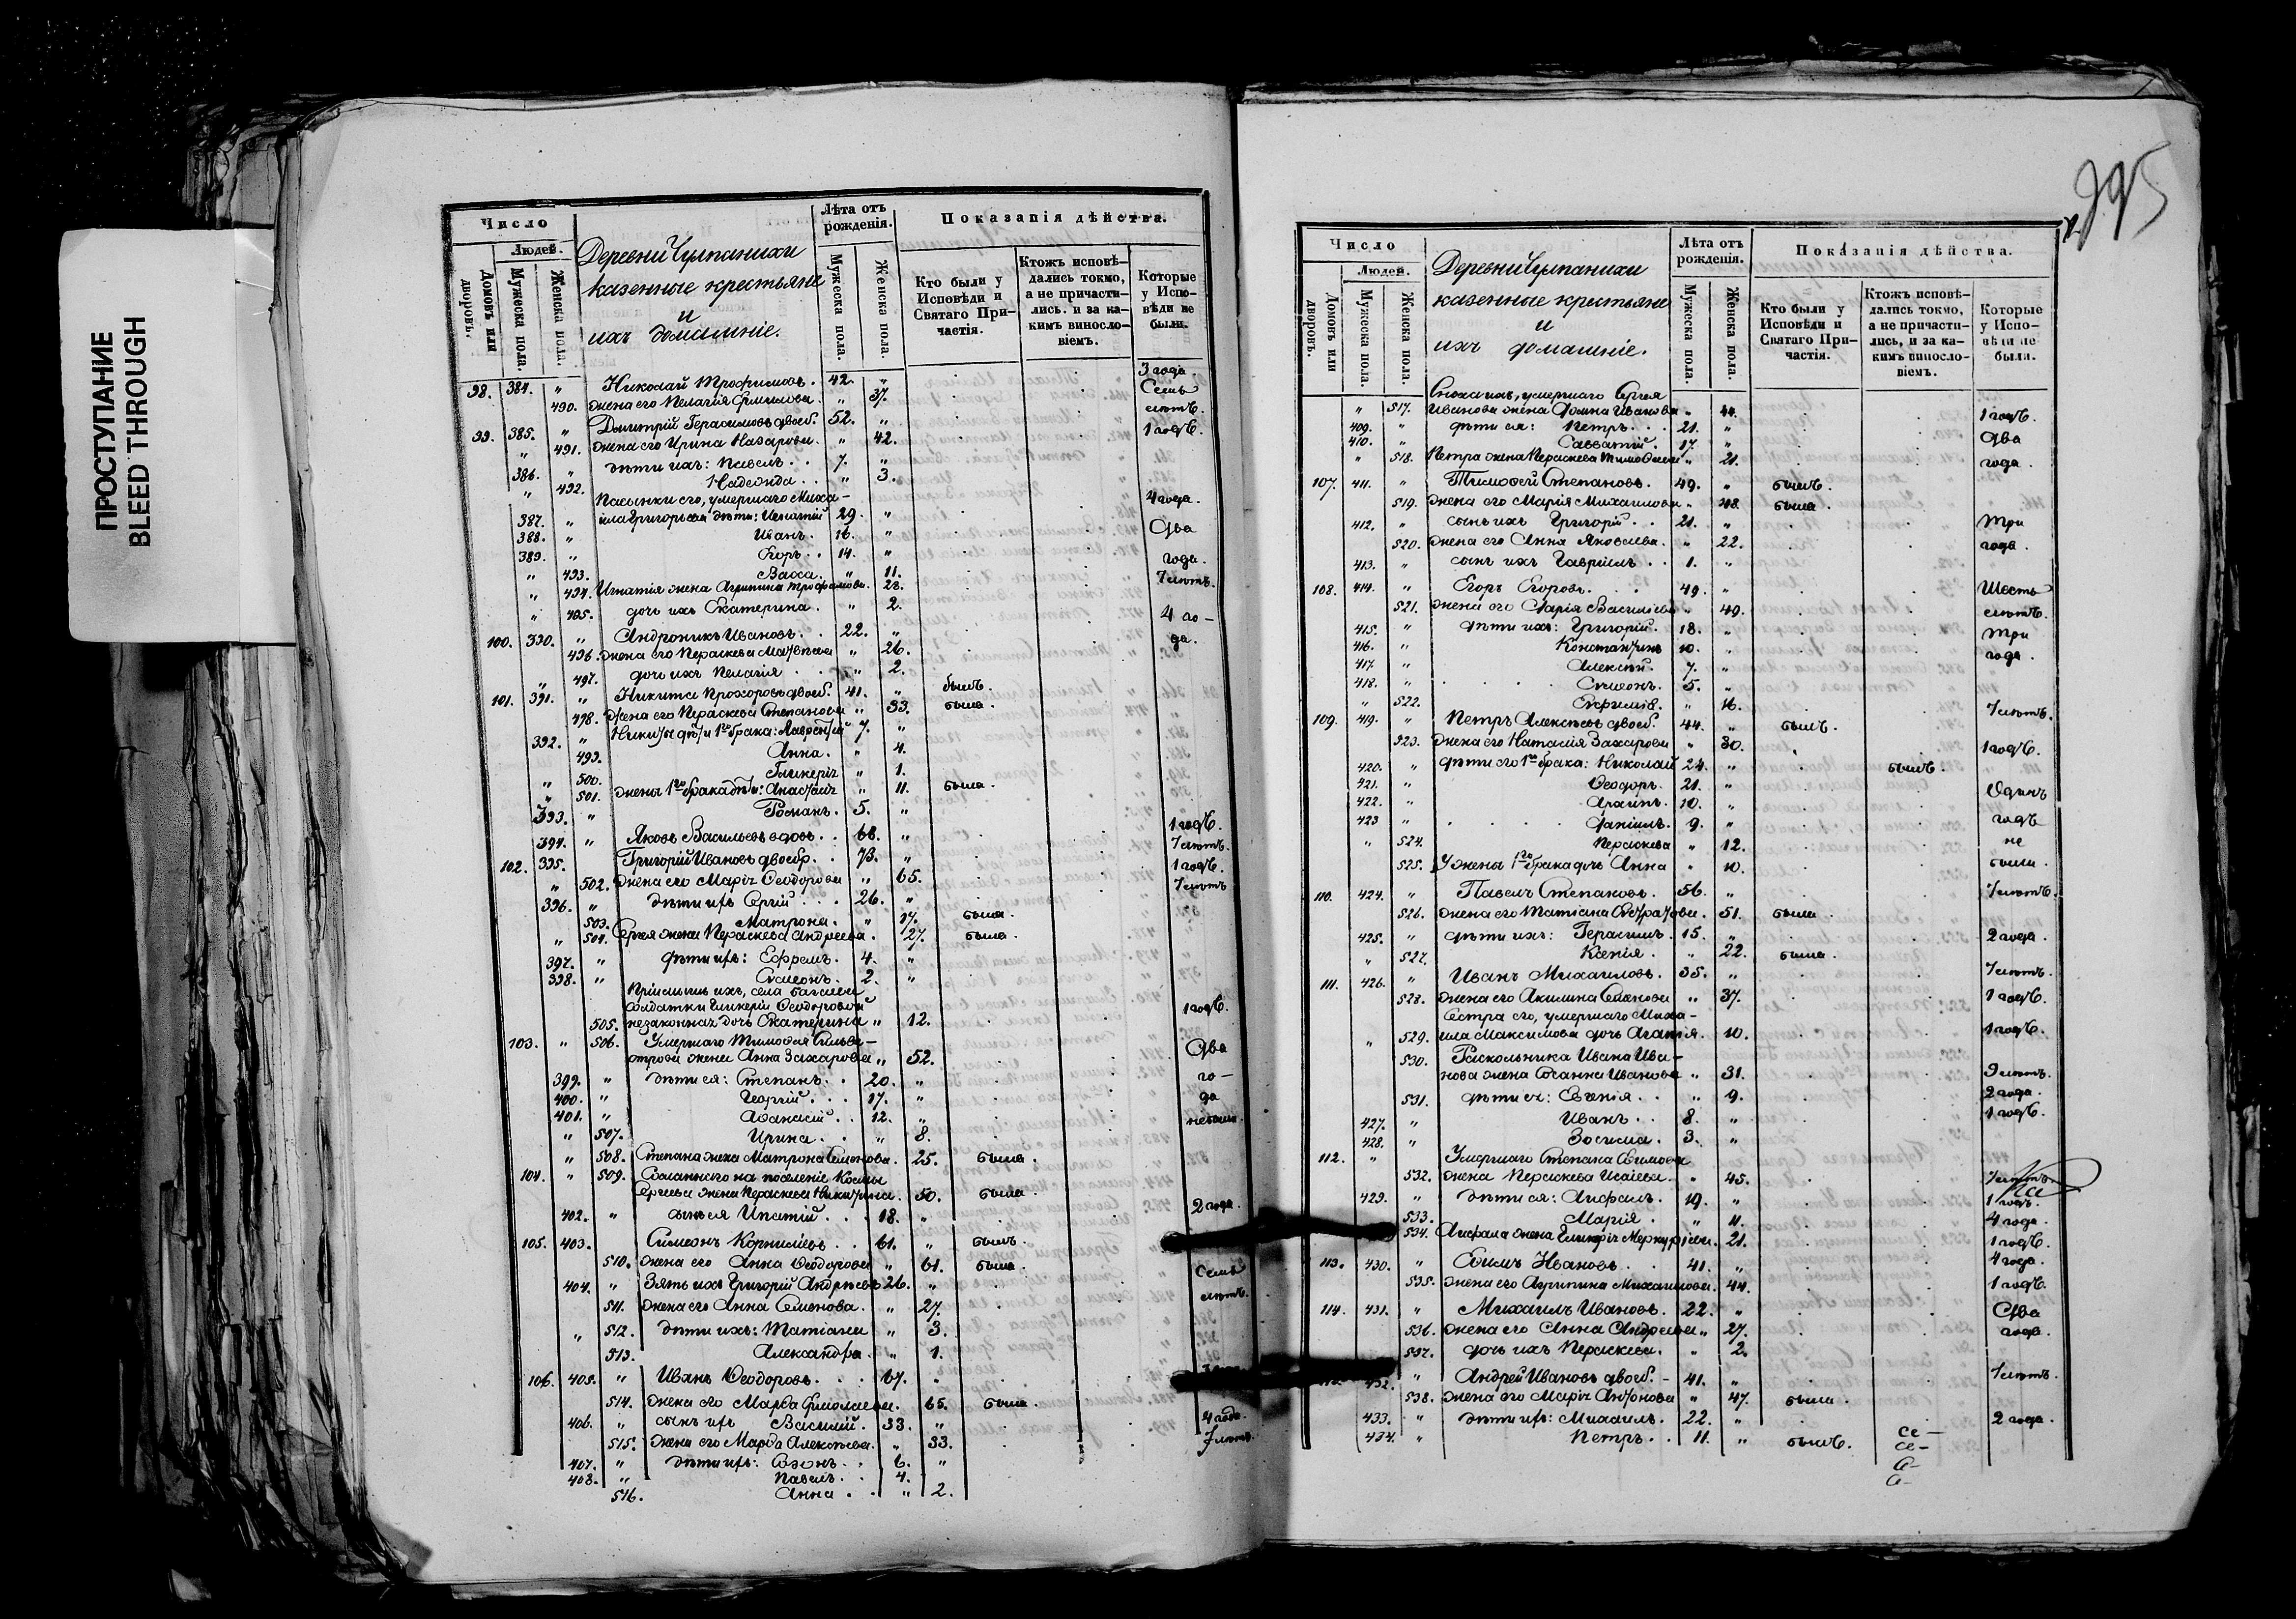 ПРОСТУПАНИЕ
BLEED THROUGH
Число
Людей.
Домовъ или дворовъ.
Мужеска пола.
Женска пола.
Деревни Чулпанихи
казенные крестьяне
и
ихъ домашніе.
Лѣта отъ рожденія.
Мужеска пола.
Женска пола.
Показанія дѣйства.
Кто были у Исповѣди и Святаго Причастія.
Ктожъ исповѣдались токмо, а не причастились. и за какимъ винословіемъ.
Которые у Исповѣди не были.
98. 384. " Николай Трофимовъ. 42. " 3 года.
490. жена его Пелагія " 37. Семь
99. 385. " Димитрій Герасимовъ двоеб. 52. " лѣтъ.
" 491. жена его Ирина Назарова. " 42. 1 годъ.
386. " дѣти ихъ: Павелъ. 7. "
" 492. Надежда. " 3.
Пасынки его, умершаго Миха-
387. " ила Григорьева дѣти: Игнатій 29. " 4 года.
388. " Иванъ. 16. " Два
389. " Егоръ. 14. "
" 493. Васса. " 11. года.
" 494. Игнатія жена Агрипина Трофимова. 28. 7 лѣтъ.
" 495. дочь ихъ Екатерина. " 2.
100. 390. " Андроникъ Ивановъ. 22. " 4 го-
496. жена его Параскева Матвѣева " 26. да.
" 497. дочь ихъ Пелагія " 2.
101. 391. " Никита Прохоровъ двоеб. 41. " былъ.
498. жена его Параскева Степанова " 33. была.
392. " Никиты дѣти 1го брака: Лаврентій 7. "
499. Анна. " 4.
" 500. Гликерія " 1.
" 501. жены 1го брака дѣти: Анастасія " 11. была.
393. " Романъ. 5. "
394. " Яковъ Васильевъ вдовъ. 68. " 1 годъ.
102. 395. " Григорій Ивановъ двоебр. 73. " 7 лѣтъ.
" 502. жена его Марія Ѳеодорова " 65. 1 годъ.
396. " дѣти ихъ Сергій 26. " 7 лѣтъ
503. Матрона. " 17. была.
" 504. Сергея жена Параскева Андреева. 27. была.
397. " дѣти ихъ: Ефремъ. 4. "
398. " Симеонъ. 2. "
Пріемышъ ихъ, села
солдатки Гликеріи Ѳеодоровой
505. незаконная дочь Екатерина " 12. 1 годъ.
103. " 506. Умершаго Тимоѳея Сильве-
строва жена Анна Захарова " 52. Два
399. " дѣти ея: Степанъ. 20. " го-
400. " Георгій 17. " да
401. " Аѳанасій. 12. " небыли.
" 507. Ирина. " 8.
" 508. Степана жена Матрона Семенова. 25. была.
104. " 509. Сосланнаго на поселеніе Космы
Сергеева жена Параскева Никитина. 50. была.
402. " сынъ ея Ипатій 18. " 2 года.
105. 403. Симеонъ Корниліевъ. 61. " былъ.
510. жена его Анна Ѳеодорова " 61. была.
404. " Зять ихъ Григорій Андреевъ 26. " Семь
511. жена его Анна Семенова. " 27. лѣтъ.
" 512. дѣти ихъ: Татіана " 3.
513. Александра. " 1.
106. 405. " Иванъ Ѳеодоровъ. 67. "
514. жена его Марѳа Ермолаева. 65. была.
406. " сынъ ихъ Василій. 33. " 4 года.
515. жена его Марѳа Алексѣева. " 33. 7 лѣтъ.
407. " дѣти ихъ: Созонъ. 6. "
408. " Павелъ. 4.
516. Анна. " 2.
Число
Людей.
Домовъ или дворовъ.
Мужеска пола.
Женска пола.
Деревни Чулпанихи
казенные крестьяне
и
ихъ домашніе.
Лѣта отъ рожденія.
Мужеска пола.
Женска пола.
Показанія дѣйства.
Кто были у Исповѣди и Святаго Причастія.
Ктожъ исповѣдались токмо, а не причастились, и за какимъ винословіемъ.
Которые у Исповѣди не были.
Сноха ихъ, умершаго Сергея
" 517. Иванова жена Домна Иванова " 44. 1 годъ.
409. " дѣти ея: Петръ. 21. " Два
410. " Савватій. 17. "
" 518. Петра жена Параскева Тимоѳеева " 21. года.
107. 411. " Тимоѳей Степановъ. 49. " былъ.
519. жена его Марія Михаилова " 48. была.
412. " сынъ ихъ Григорій. 21. " Три
520. жена его Анна Яковлева. " 22. года.
413. " сынъ ихъ Гавріилъ. 1. "
108. 414. " Егоръ Егоровъ. 49. " Шесть
521. жена его Дарія Васильева " 49. лѣтъ.
415. " дѣти ихъ: Григорій. 18. " Три
416. " Константинъ 10. " года.
417. " Алексій. 7. "
418. " Симеонъ. 5. "
" 522. Евфимія. " 16. 7 лѣтъ.
109. 419. " Петръ Алексѣевъ двоеб. 44. " былъ.
523. жена его Наталія Захарова " 30. 1 годъ.
420. " дѣти его 1го брака: Николай 24. " былъ.
421. " Ѳеодоръ. 21. " Одинъ
422. " 10. "
423 " Даніилъ. 9. " годъ
" 524. Параскева " 12. не
525. У жены 1го брака дочь Анна " 10. были.
110. 424. " Павелъ Степановъ. 56. " 7 лѣтъ.
526. жена его Татіана 51. была.
425. " дѣти ихъ: Герасимъ. 15. " 2 года.
" 527. Ксенія. " 22. была.
111. 426. " Иванъ Михаиловъ. 35. " 7 лѣтъ.
528. жена его Акилина Семенова " 37. 1 годъ.
Сестра его, умершаго Миха-
" 529. ила Максимова дочь Агапія. 10. 1 годъ.
530. Раскольника Ивана Ива-
нова жена Сосанна Иванова " 31. 9 лѣтъ.
531. дѣти ея: Евгенія. " 9. 2 года.
427. " Иванъ. 8. " 1 годъ.
428. " Зосима. 3. "
112. " Умершаго Степана Ефимова
532. жена Параскева Исаіева. " 45. 7 лѣтъ.
429. " дѣти ея: 19. " 1 годъ.
533. Марія. " 11. 4 года.
534. жена Гликерія Меркуріева. 21. 1 годъ.
113. 430. " Ефимъ Ивановъ. 41. " 4 года.
535. жена его Агрипина Михаилова. 44. 1 годъ.
114. 431. " Михаилъ Ивановъ. 22. " Два
536. жена его Анна Андреева " 27. года.
537. дочь ихъ Параскева. " 2.
432. " Андрей Ивановъ двоеб. 41. " 7 лѣтъ.
538. жена его Марія Антонова " 47. была.
433. " дѣти ихъ: Михаилъ. 22. " 2 года.
434. " Петръ. 11. " былъ.